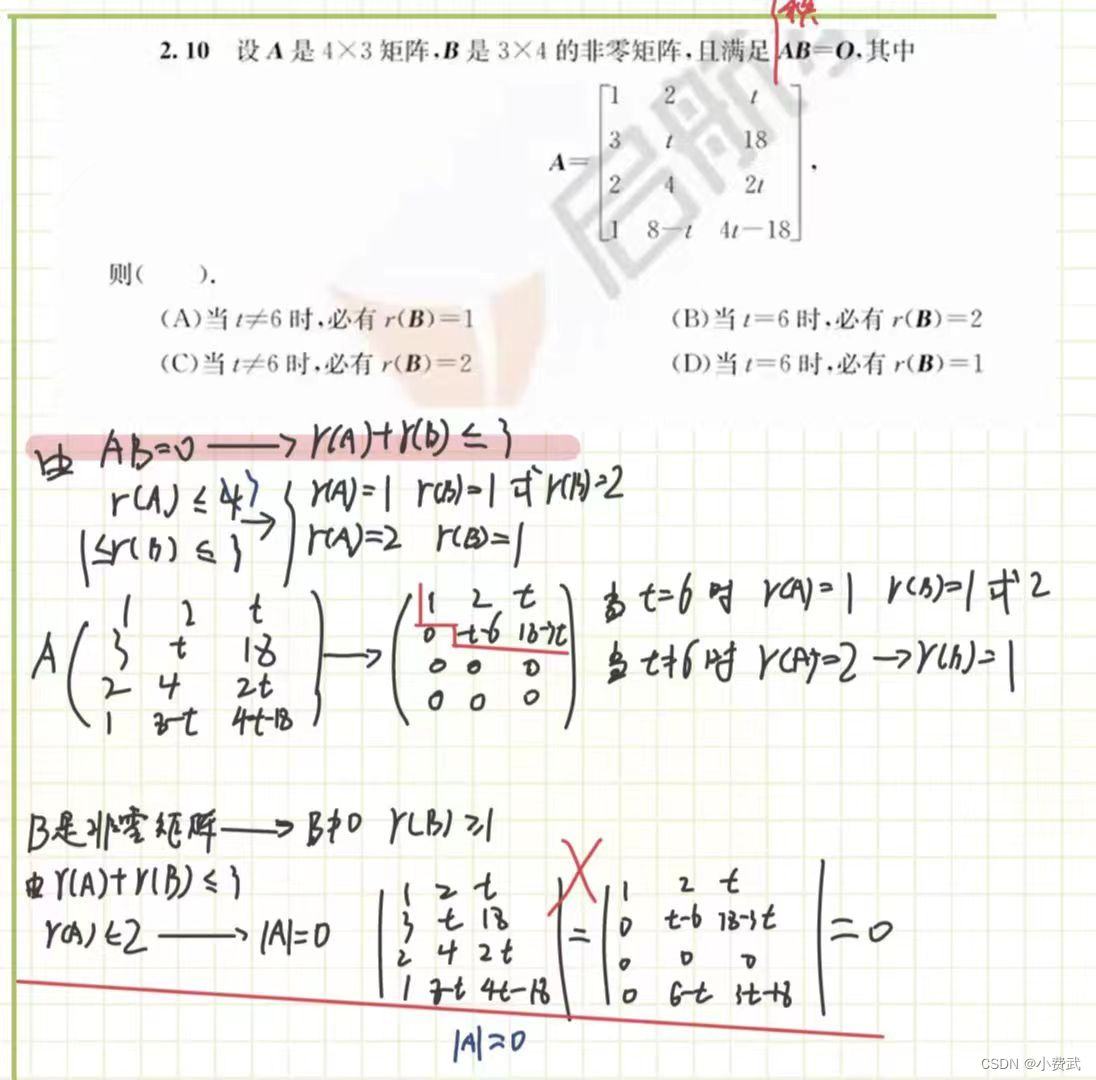 秩
2.10 设 A 是 4×3 矩阵,B 是 3×4 的非零矩阵,且满足 AB=O,其中
A=
1 2 t
3 t 18
2 4 2t
1 8-t 4t-18
,
则( ).
(A)当 t≠6 时,必有 r(B)=1 (B)当 t=6 时,必有 r(B)=2
(C)当 t≠6 时,必有 r(B)=2 (D)当 t=6 时,必有 r(B)=1
启航
由 AB=0 → r(A)+r(B)≤3
r(A)≤ 3 → r(A)=1 r(B)=1 或 r(B)=2
1≤r(B)≤3 r(A)=2 r(B)=1
A
1 2 t
3 t 18
2 4 2t
1 8-t 4t-18
→
1 2 t
0 t-6 18-3t
0 0 0
0 0 0
当 t=6 时 r(A)=1 r(B)=1 或 2
当 t≠6 时 r(A)=2 → r(B)=1
B是非零矩阵 → B≠0 r(B)≥1
由 r(A)+r(B)≤3
r(A)≤2 → |A|=0
1 2 t
3 t 18
2 4 2t
1 8-t 4t-18
=
1 2 t
0 t-6 18-3t
0 0 0
0 6-t 3t-18
=0
|A|=0
CSDN @小费武